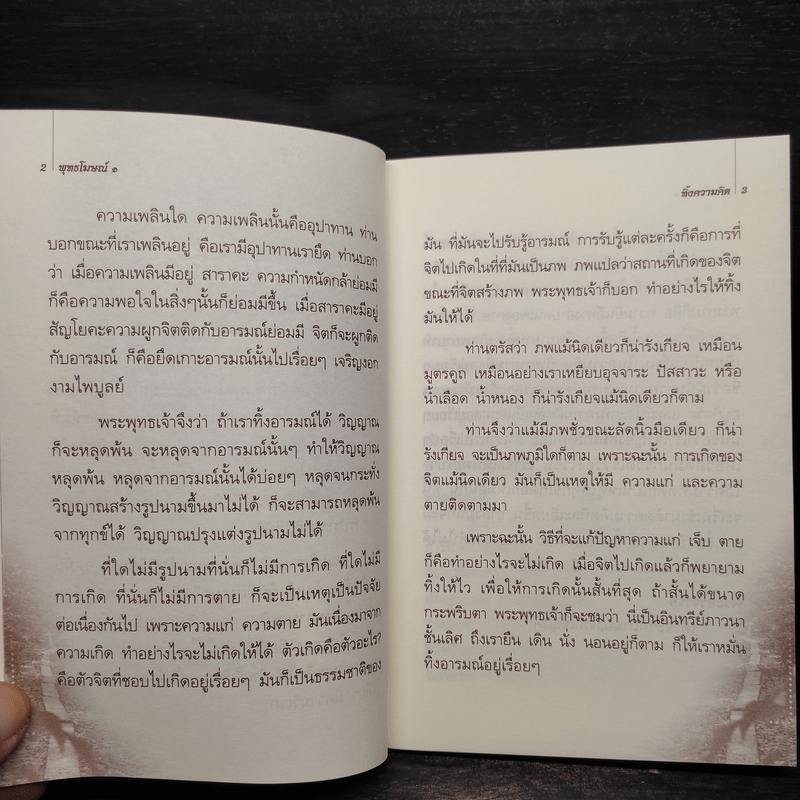 2 พุทธโฆษณ์ ๑
ความเพลินใด ความเพลินนั้นคืออุปาทาน ท่าน
บอกขณะที่เราเพลินอยู่ คือเรามีอุปาทานเรายึด ท่านบอก
ว่า เมื่อความเพลินมีอยู่ สาราคะ ความกำหนัดกล้าย่อมมี
ก็คือความพอใจในสิ่งๆนั้นก็ย่อมมีขึ้น เมื่อสาราคะมีอยู่
สัญโยคะความผูกจิตติดกับอารมณ์ย่อมมี จิตก็จะผูกติด
กับอารมณ์ ก็คือยึดเกาะอารมณ์นั้นไปเรื่อยๆ เจริญงอก
งามไพบูลย์
พระพุทธเจ้าจึงว่า ถ้าเราทิ้งอารมณ์ได้ วิญญาณ
ก็จะหลุดพ้น จะหลุดจากอารมณ์นั้นๆ ทำให้วิญญาณ
หลุดพ้น หลุดจากอารมณ์นั้นได้บ่อยๆ หลุดจนกระทั่ง
วิญญาณสร้างรูปนามขึ้นมาไม่ได้ ก็จะสามารถหลุดพ้น
จากทุกข์ได้ วิญญาณปรุงแต่งรูปนามไม่ได้
ที่ใดไม่มีรูปนามที่นั่นก็ไม่มีการเกิด ที่ใดไม่มี
การเกิด ที่นั่นก็ไม่มีการตาย ก็จะเป็นเหตุเป็นปัจจัย
ต่อเนื่องกันไป เพราะความแก่ ความตาย มันเนื่องมาจาก
ความเกิด ทำอย่างไรจะไม่เกิดให้ได้ ตัวเกิดคือตัวอะไร?
คือตัวจิตที่ชอบไปเกิดอยู่เรื่อยๆ มันก็เป็นธรรมชาติของ
ทิ้งความคิด 3
มัน ที่มันจะไปรับรู้อารมณ์ การรับรู้แต่ละครั้งก็คือการที่
จิตไปเกิดในที่ที่มันเป็นภพ ภพแปลว่าสถานที่เกิดของจิต
ขณะที่จิตสร้างภพ พระพุทธเจ้าก็บอก ทำอย่างไรให้ทิ้ง
มันให้ได้
ท่านตรัสว่า ภพแม้นิดเดียวก็น่ารังเกียจ เหมือน
มูตรคูถ เหมือนอย่างเราเหยียบอุจจาระ ปัสสาวะ หรือ
น้ำเลือด น้ำหนอง ก็น่ารังเกียจแม้นิดเดียวก็ตาม
ท่านจึงว่าแม้มีภพชั่วขณะลัดนิ้วมือเดียว ก็น่า
รังเกียจ จะเป็นภพภูมิใดก็ตาม เพราะฉะนั้น การเกิดของ
จิตแม้นิดเดียว มันก็เป็นเหตุให้มี ความแก่ และความ
ตายติดตามมา
เพราะฉะนั้น วิธีที่จะแก้ปัญหาความแก่ เจ็บ ตาย
ก็คือทำอย่างไรจะไม่เกิด เมื่อจิตไปเกิดแล้วก็พยายาม
ทิ้งให้ไว เพื่อให้การเกิดนั้นสั้นที่สุด ถ้าสั้นได้ขนาด
กระพริบตา พระพุทธเจ้าก็จะชมว่า นี่เป็นอินทรีย์ภาวนา
ชั้นเลิศ ถึงเรายืน เดิน นั่ง นอนอยู่ก็ตาม ก็ให้เราหมั่น
ทิ้งอารมณ์อยู่เรื่อยๆ